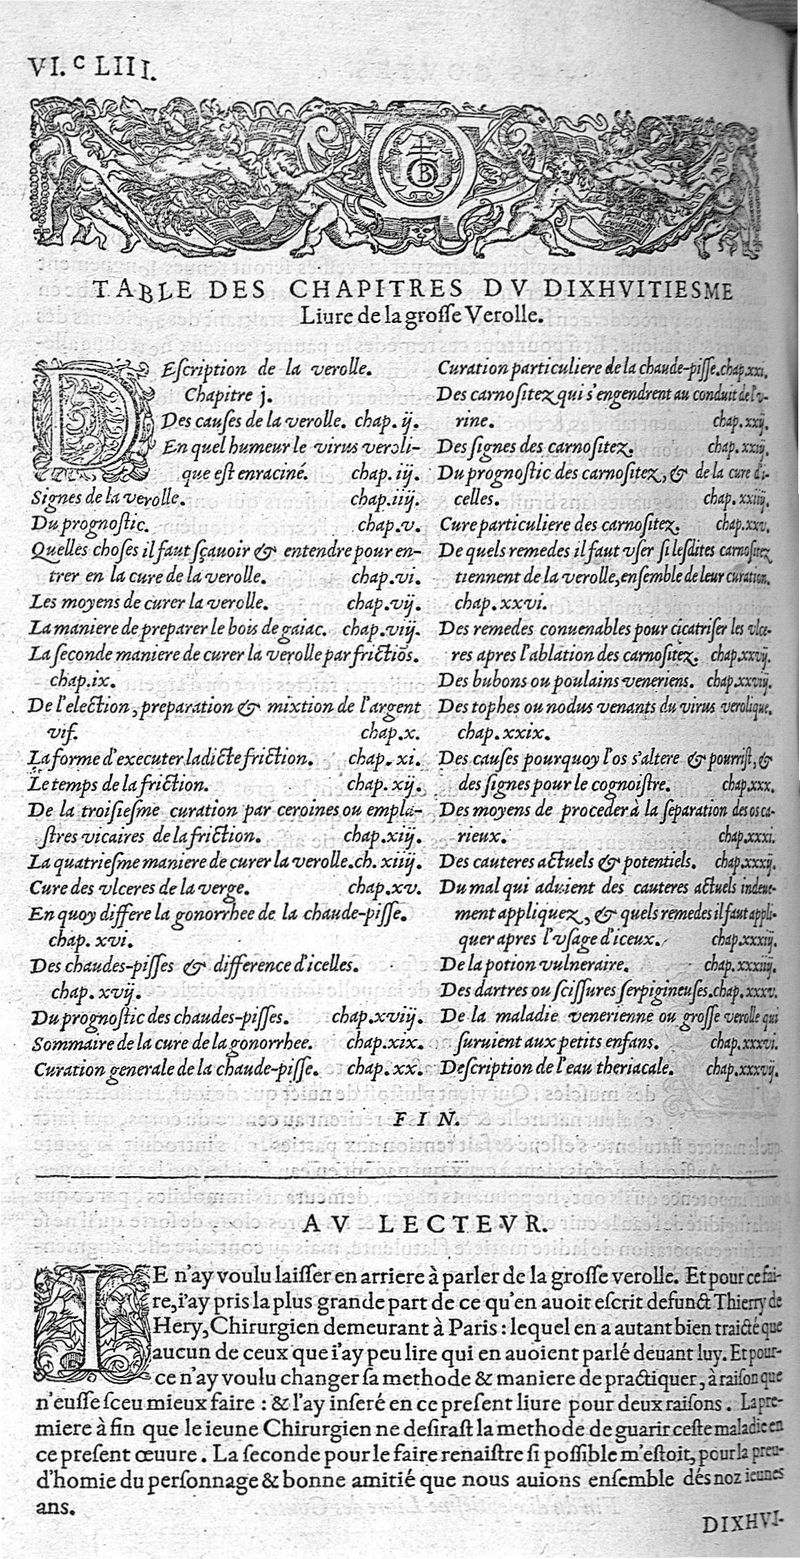 VI.ᶜ LIII.
TABLE DES CHAPITRES DV DIXHVITIESME
Liure de la grosse Verolle.
DEscription de la verolle.
Chapitre j.
Des causes de la verolle. chap. ij.
En quel humeur le virus veroli-
que est enraciné. chap. iij.
Signes de la verolle. chap. iiij.
Du prognostic. chap. v.
Quelles choses il faut sçauoir & entendre pour en-
trer en la cure de la verolle. chap. vi.
Les moyens de curer la verolle. chap. vij.
La maniere de preparer le bois de gaiac. chap. viij.
La seconde maniere de curer la verolle par frictiõs.
chap. ix.
De l'election, preparation & mixtion de l'argent
vif. chap. x.
La forme d'executer ladicte friction. chap. xi.
Le temps de la friction. chap. xij.
De la troisiesme curation par ceroines ou empla-
stres vicaires de la friction. chap. xiij.
La quatriesme maniere de curer la verolle. ch. xiiij.
Cure des vlceres de la verge. chap. xv.
En quoy differe la gonorrhee de la chaude-pisse.
chap. xvi.
Des chaudes-pisses & difference d'icelles.
chap. xvij.
Du prognostic des chaudes-pisses. chap. xviij.
Sommaire de la cure de la gonorrhee. chap. xix.
Curation generale de la chaude-pisse. chap. xx.
Curation particuliere de la chaude-pisse. chap. xxi.
Des carnositez qui s'engendrent au conduit de l'v-
rine. chap. xxij.
Des signes des carnositez. chap. xxiij.
Du prognostic des carnositez, & de la cure d'i-
celles. chap. xxiiij.
Cure particuliere des carnositez. chap. xxv.
De quels remedes il faut vser si lesdites carnositez
tiennent de la verolle, ensemble de leur curation.
chap. xxvi.
Des remedes conuenables pour cicatriser les vlce-
res apres l'ablation des carnositez. chap. xxvij.
Des bubons ou poulains veneriens. chap. xxviij.
Des tophes ou nodus venants du virus verolique.
chap. xxix.
Des causes pourquoy l'os s'altere & pourrist, &
des signes pour le cognoistre. chap. xxx.
Des moyens de proceder à la separation des os ca-
rieux. chap. xxxi.
Des cauteres actuels & potentiels. chap. xxxij.
Du mal qui aduient des cauteres actuels indeue-
ment appliquez, & quels remedes il faut appli-
quer apres l'vsage d'iceux. chap. xxxiij.
De la potion vulneraire. chap. xxxiiij.
Des dartres ou scissures serpigineuses. chap. xxxv.
De la maladie venerienne ou grosse verolle qui
suruient aux petits enfans. chap. xxxvi.
Description de l'eau theriacale. chap. xxxvij.
FIN.
AV LECTEVR.
IE n'ay voulu laisser en arriere à parler de la grosse verolle. Et pour ce fai-
re, i'ay pris la plus grande part de ce qu'en auoit escrit defunct Thierry de
Hery, Chirurgien demeurant à Paris : lequel en a autant bien traicté que
aucun de ceux que i'ay peu lire qui en auoient parlé deuant luy. Et pour-
ce n'ay voulu changer sa methode & maniere de practiquer, à raison que
n'eusse sceu mieux faire : & l'ay inseré en ce present liure pour deux raisons. La pre-
miere à fin que le ieune Chirurgien ne desirast la methode de guarir ceste maladie en
ce present œuure. La seconde pour le faire renaistre si possible m'estoit, pour la preu-
d'homie du personnage & bonne amitié que nous auions ensemble dés noz ieunes
ans.
DIXHVI-